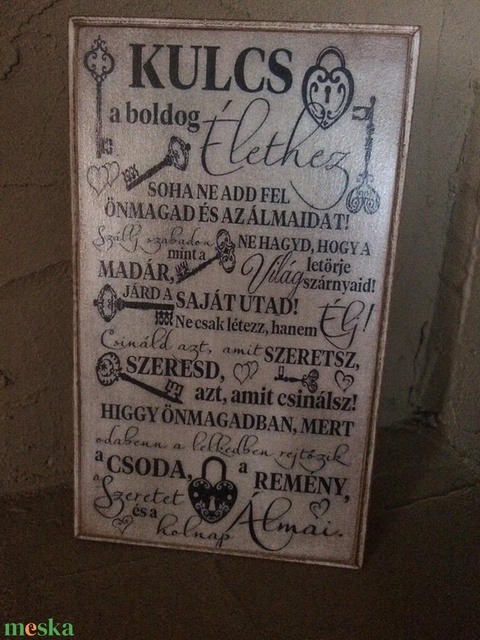 KULCS
a boldog Élethez
SOHA NE ADD FEL
ÖNMAGAD ÉS AZ ÁLMAIDAT!
Szállj szabadon
mint a
MADÁR,
NE HAGYD, HOGY A
Világ letörje
szárnyaid!
JÁRD A SAJÁT UTAD!
Ne csak létezz, hanem ÉLJ!
Csináld azt, amit SZERETSZ,
SZERESD,
azt, amit csinálsz!
HIGGY ÖNMAGADBAN, MERT
odabenn a lelkedben rejtőzik
a CSODA, a REMÉNY,
a Szeretet
és a holnap Álmai.
meska